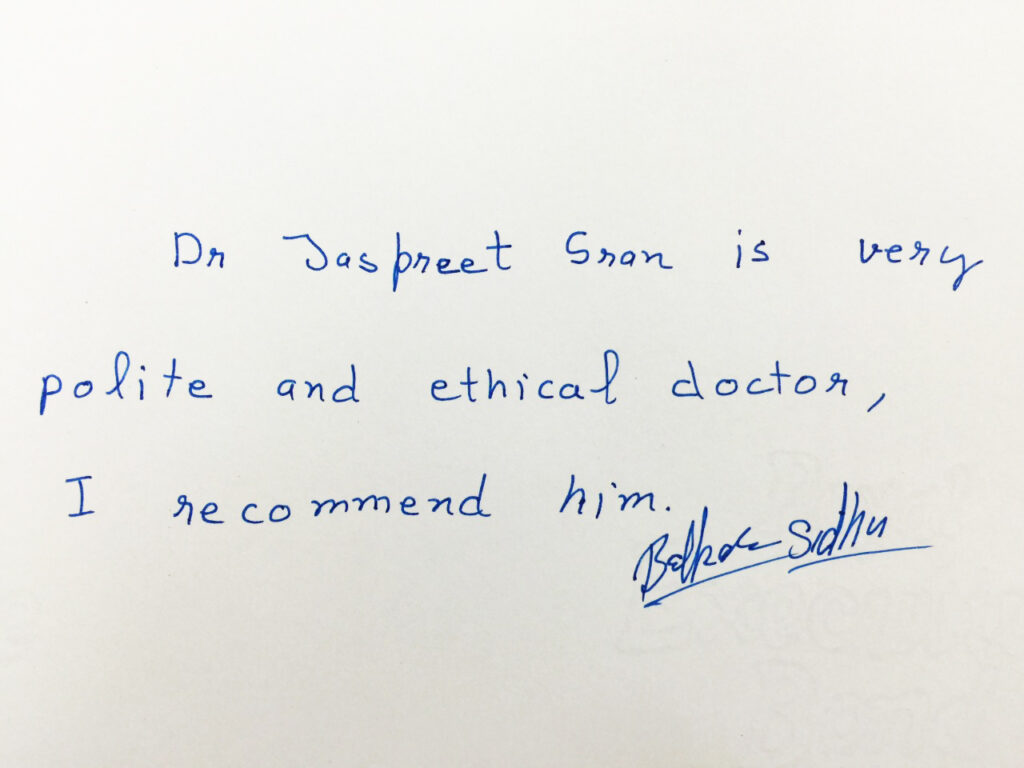 Dr Jaspreet Sran is very
polite and ethical doctor,
I recommend him.
Sidhu